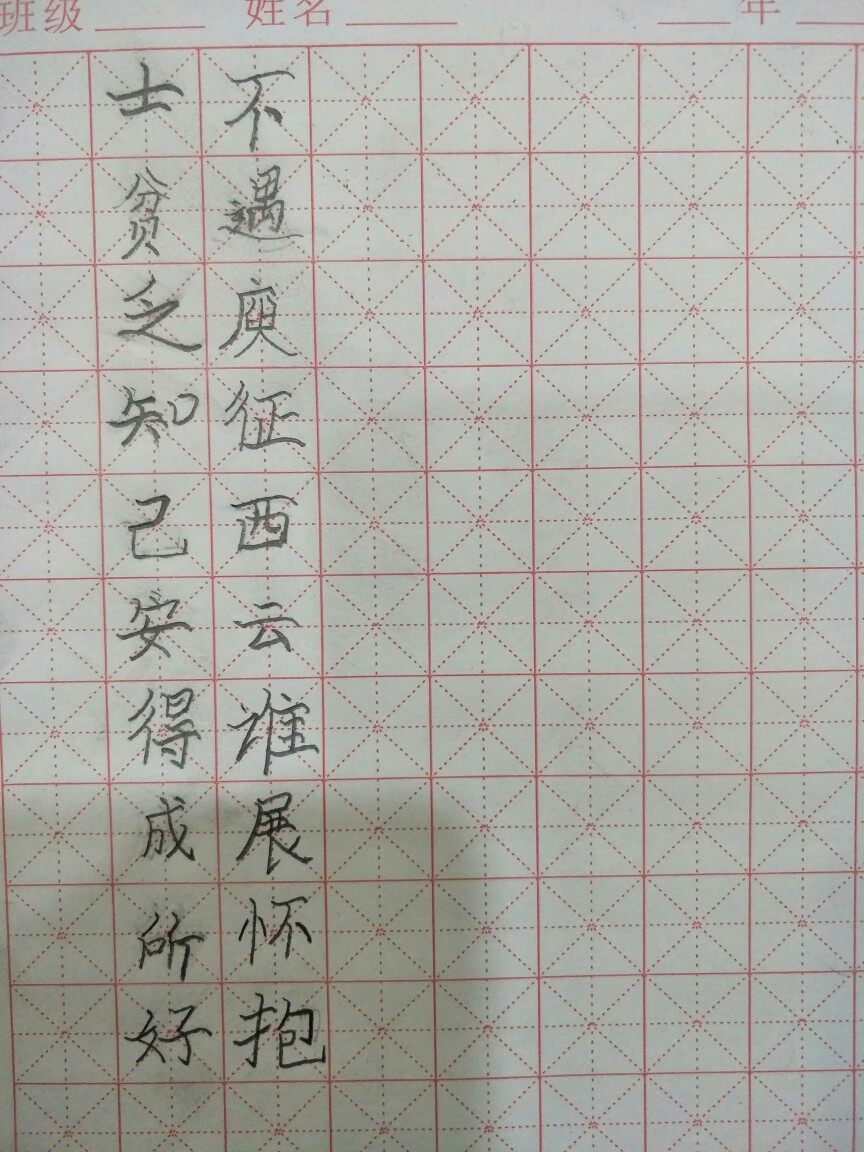 班级 姓名 年
不遇庾征西云谁展怀抱
士贫乏知己安得成所好